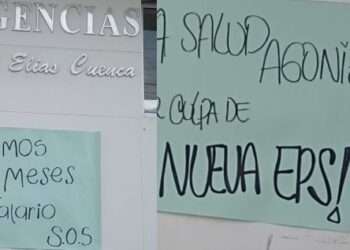 GENCIAS
Elías Cuenca
MOS
MESES
alario
S.O.S
A SALUD
AGONI
CULPA DE
NUEVA EPS!